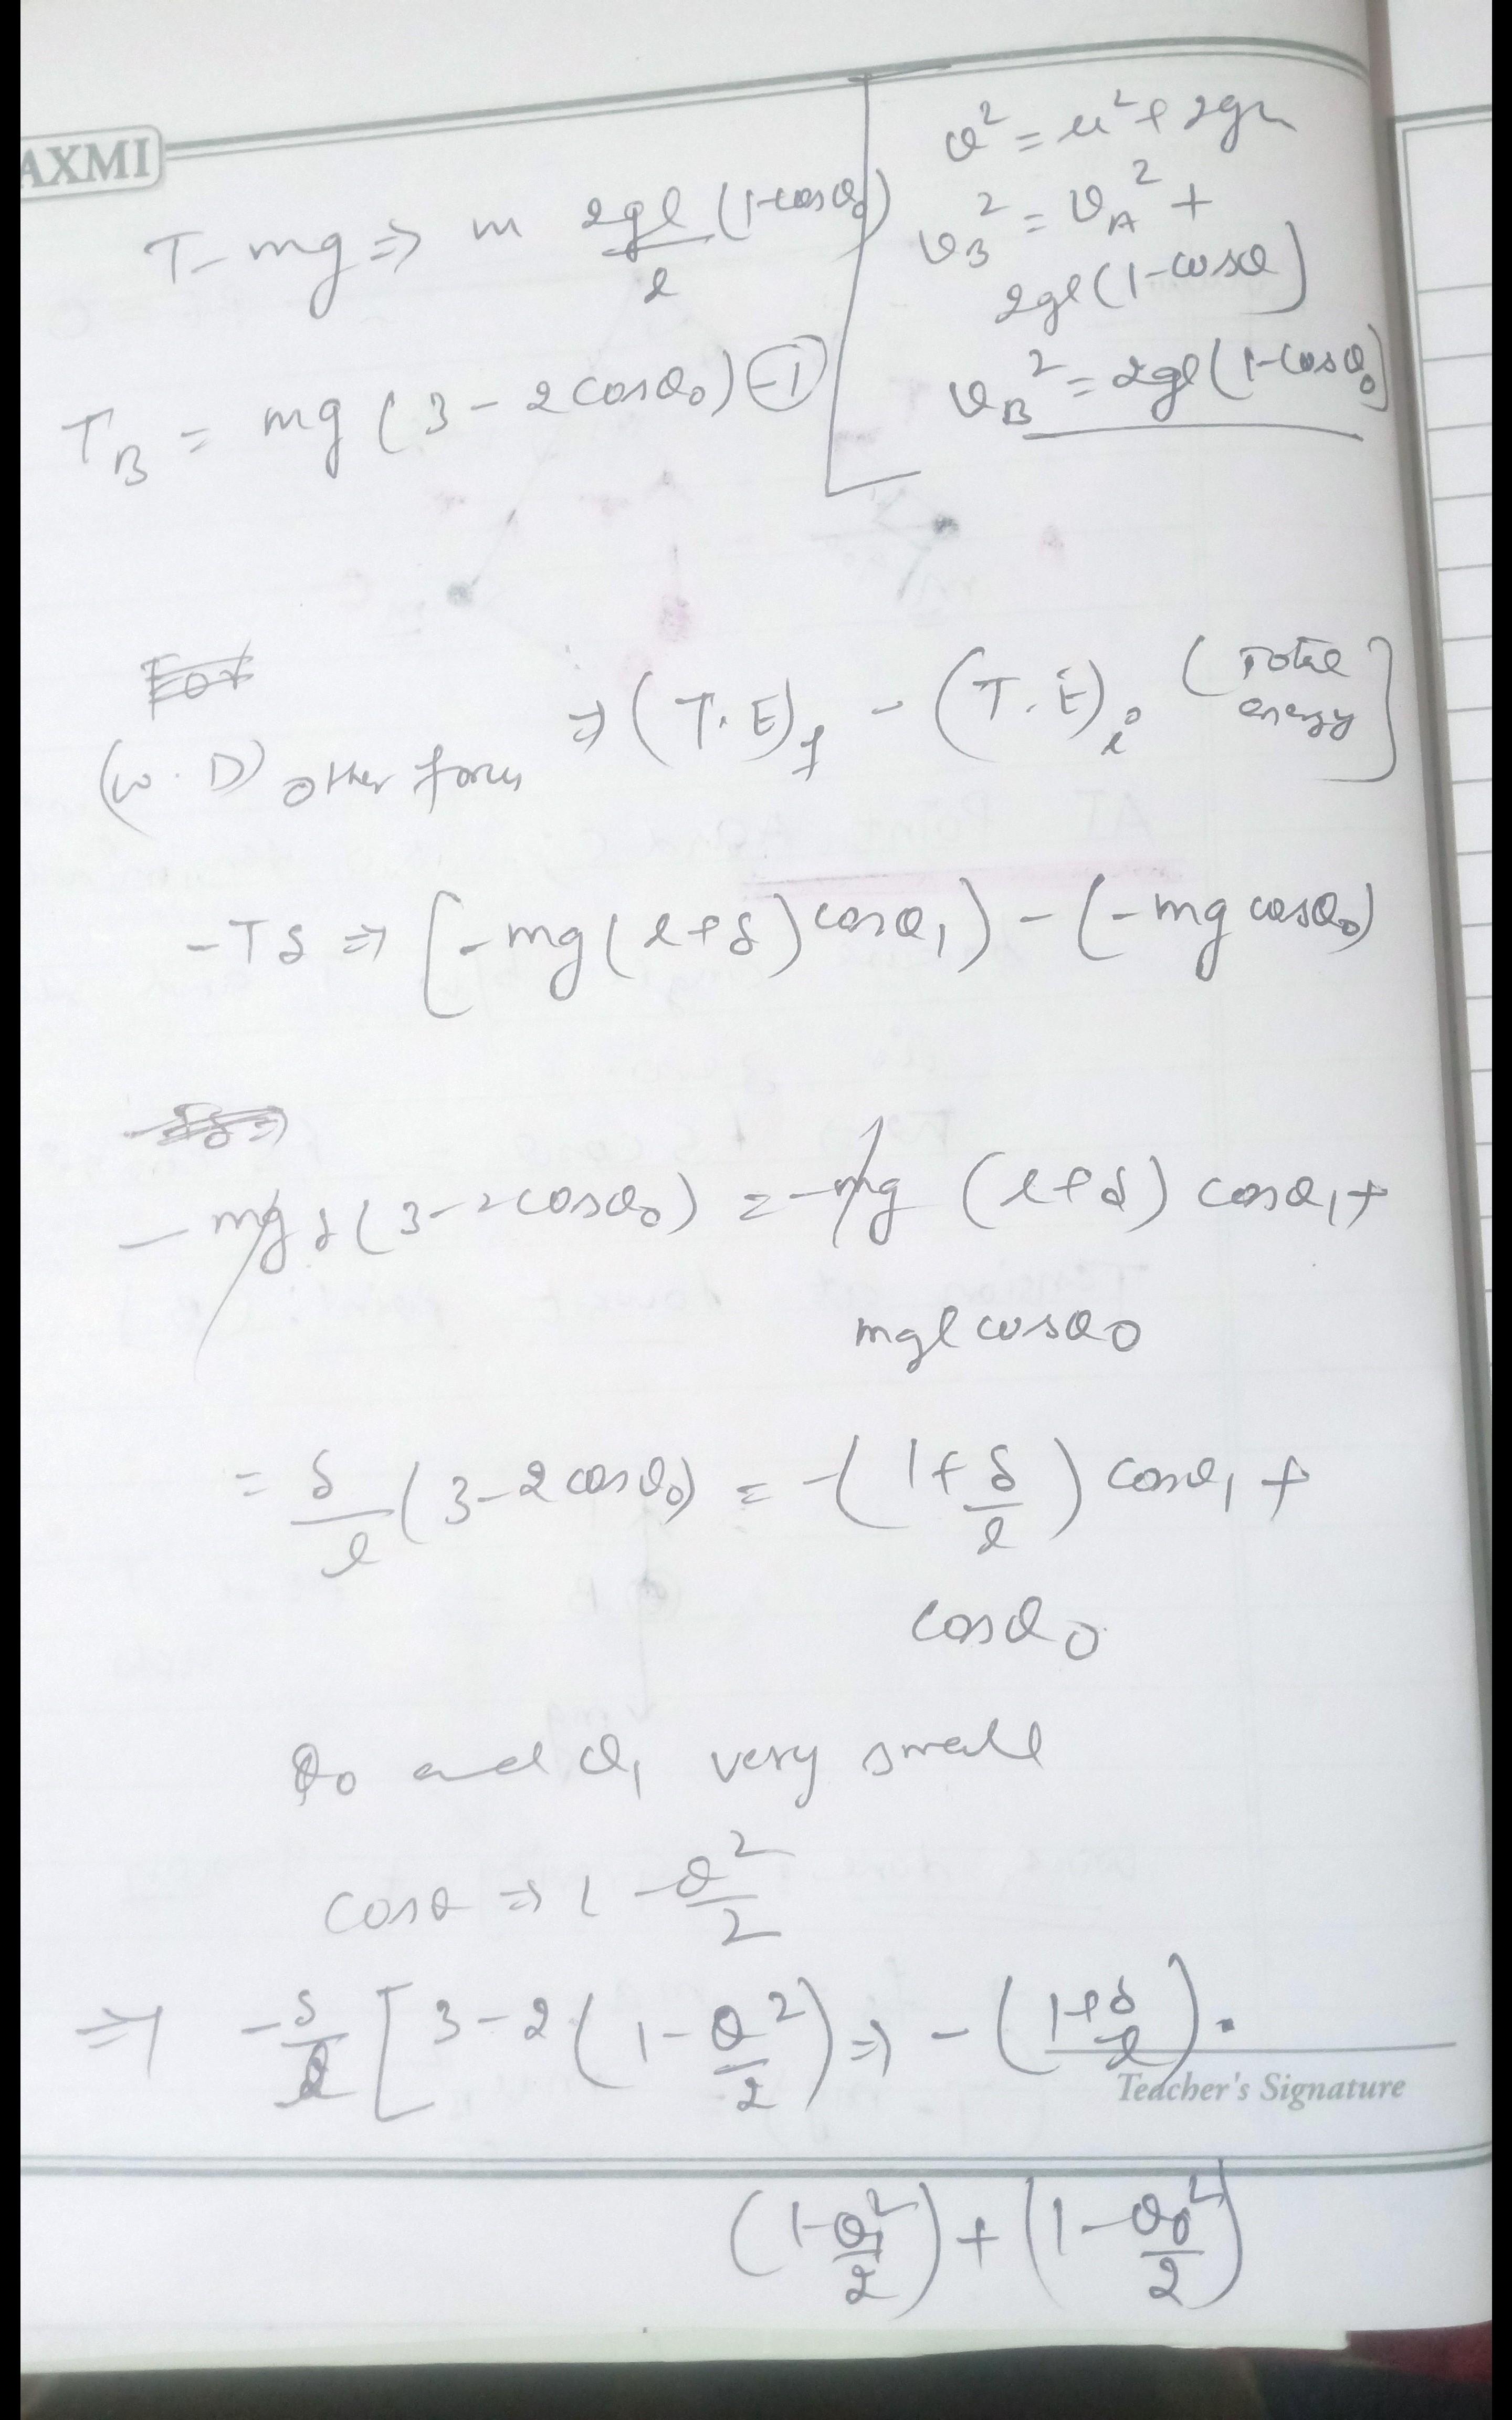 AXMI
T - mg ⇒ m 2gl/l (1-cosθ₀)
T_B = mg (3 - 2cosθ₀) -①
v² = u² + 2gh
v_B² = v_A² +
2gl(1-cosθ)
v_B² = 2gl(1-cosθ₀)
For
(W.D) other forces ⇒ (T.E)_f - (T.E)_i (Total energy)
-Tδ ⇒ [-mg(l+δ)cosθ₁) - (-mg cosθ₀)
-mgδ(3-2cosθ₀) = -mg (l+δ) cosθ₁ +
mgl cosθ0
= δ/l (3-2cosθ₀) = -(1+δ/l) cosθ₁ +
cosθ0
θ₀ and θ₁ very small
cosθ ⇒ 1 - θ²/2
⇒ -δ/l [3-2(1-θ²/2) ⇒ -(1+δ/l).
Teacher's Signature
(1-θ₁²/2) + (1-θ₀²/2)